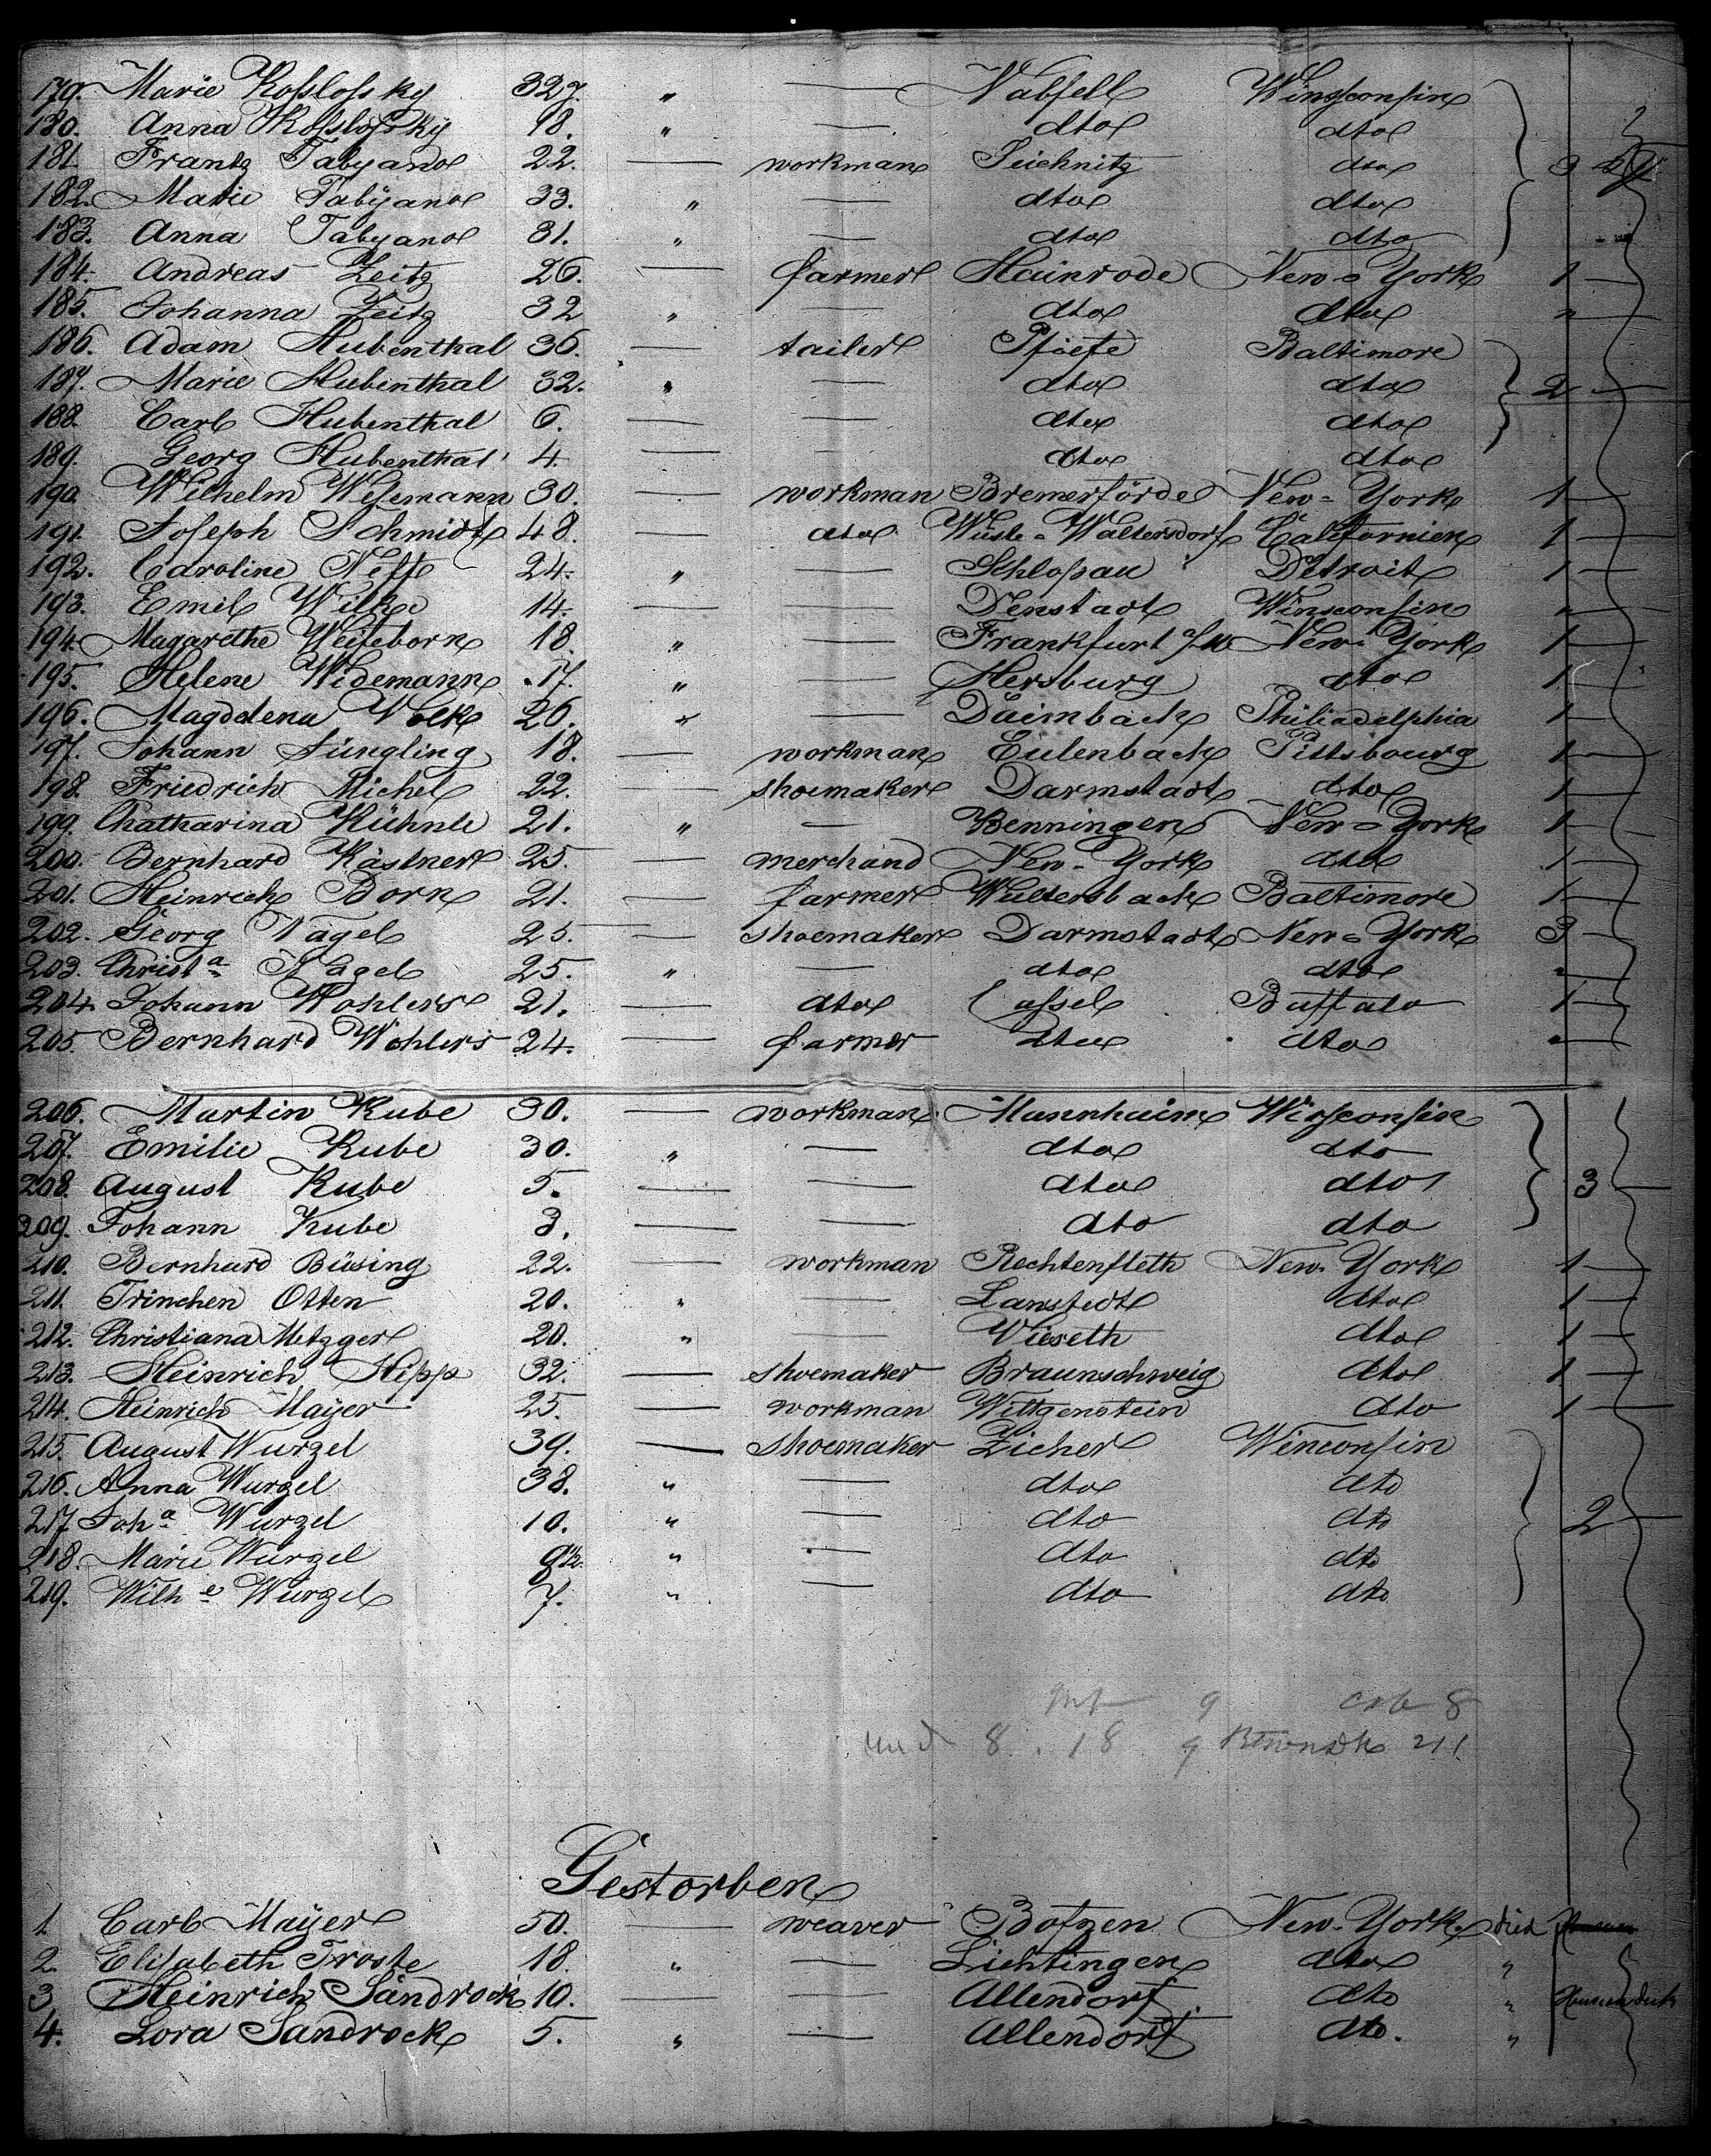 179. Marie Koslofsky 32 " — Wisconsin
180. Anna Koslofsky 18. " — dto dto
181. Frantz Tabyano 22. — workman Seichnitz dto
182. Marie Tabyano 33. " — dto dto
183. Anna Tabyano 31. " — dto dto
184. Andreas Zeitz 26. — farmer Hainrode New-York 1 —
185. Johanna Zeitz 32 " — dto dto "
186. Adam Hubenthal 36. — tailer Baltimore
187. Marie Hubenthal 32. " — dto dto 2 —
188. Carl Hubenthal 6. — — dto dto
189. Georg Hubenthal 4. — — dto dto
190. Wilhelm Wisemann 30. — workman Bremerförde New-York 1 —
191. Joseph Schmidt 48. — dto Wüste-Waltersdorf Californien 1 —
192. Caroline Neff 24. " — Schloßau Detroit 1 —
193. Emil Wilke 14. — — Denstadt Winsconsin "
194. Magarethe Weiseborn 18. " — Frankfurt a/M New-York 1 —
195. Helene Widemann 17. " — Hersburg dto 1 —
196. Magdelena Volk 26. " — Daimbach Philiadelphia 1 —
197. Johann Jüngling 18. — workman Eulenback Pittsbourg 1 —
198. Friedrich Michel 22. — shoemaker Darmstadt dto 1 —
199. Chatharina Kühnle 21. " — Benningen New-York 1 —
200. Bernhard Kästner 25. — merchand New-York dto 1 —
201. Heinrich Born 21. — farmer Waltersback Baltimore 1 —
202. Georg Nagel 25. — shoemaker Darmstadt New-York 3 —
203. Christa Nagel 25. " — dto dto "
204. Johann Wohlers 21. — dto Cassel Buffalo 1 —
205. Bernhard Wohlers 24. — farmer dto dto "
206. Martin Kube 30. — workman Mannhaim Wisconsin
207. Emilie Kube 30. " — dto dto
208. August Kube 5. — — dto dto 3 —
209. Johann Kube 3. — — dto dto
210. Bernhard Büsing 22. — workman Rechtenfleth New-York 1 —
211. Trinchen Otten 20. " — Lamstedt dto 1 —
212. Christiana Metzger 20. " — Wieseth dto 1 —
213. Heinrich Hipp 32. — shoemaker Braunschweig dto 1 —
214. Heinrich Mayer 25. — workman Wittgenstein dto 1 —
215. August Wurzel 39. — shoemaker Zicher Winconsin
216. Anna Wurzel 38. " — dto dto
217. Joha Wurzel 10. " — dto dto 2 —
218. Marie Wurzel 9½ " — dto dto
219. Wilhe Wurzel 7. " — dto dto
9 8
8. 18 9 211
Gestorben
1. Carl Mayer 50. — weaver Botzen New-York died
2. Elisabeth Troste 18. " — Lichtingen dto "
3. Heinrich Sandrock 10. — — Allendorf dto "
4. Lora Sandrock 5. " — Allendorf dto. "